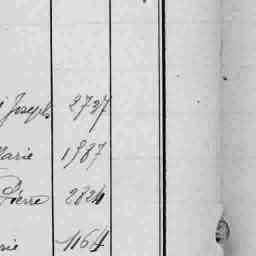 Joseph 2727
Marie 1987
Pierre 2824
1164